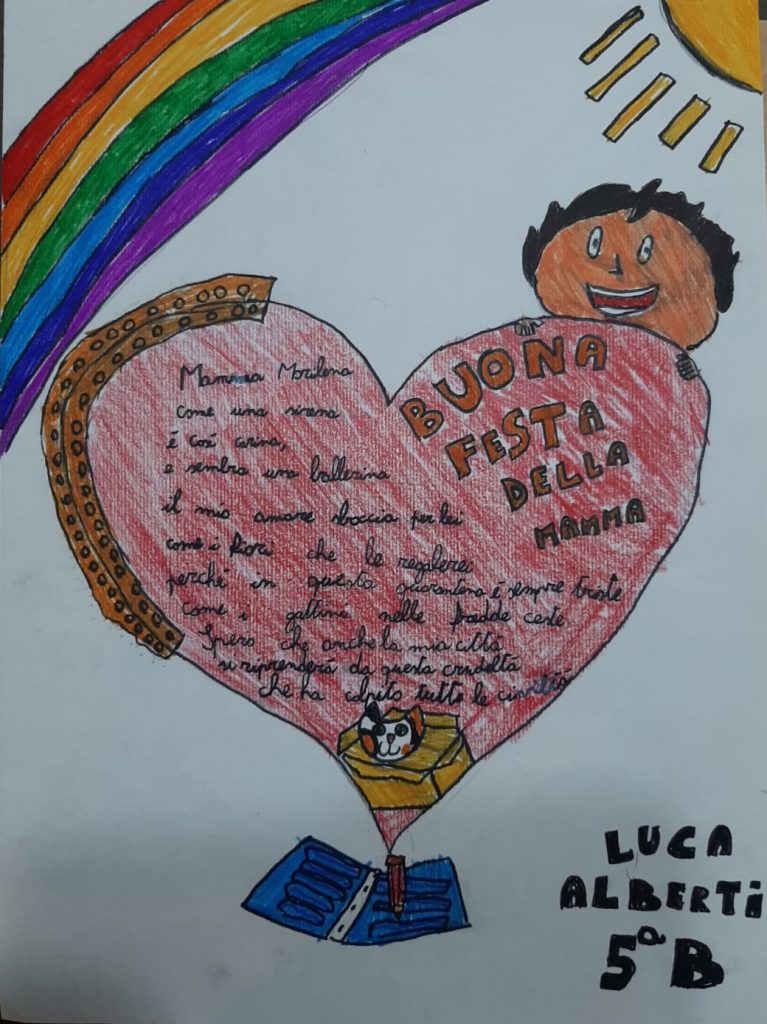 Mamma Marilena
come una sirena
è così carina,
e sembra una ballerina
il mio amore sboccia per lei
come i fiori che le regalerei
perchè in questa quarantena è sempre triste
come i gattini nelle fredde ceste
Spero che anche la mia città
si riprenderà da questa crudeltà
che ha colpito tutte le civiltà
BUONA
FESTA
DELLA
MAMMA
LUCA
ALBERTi
5ª B